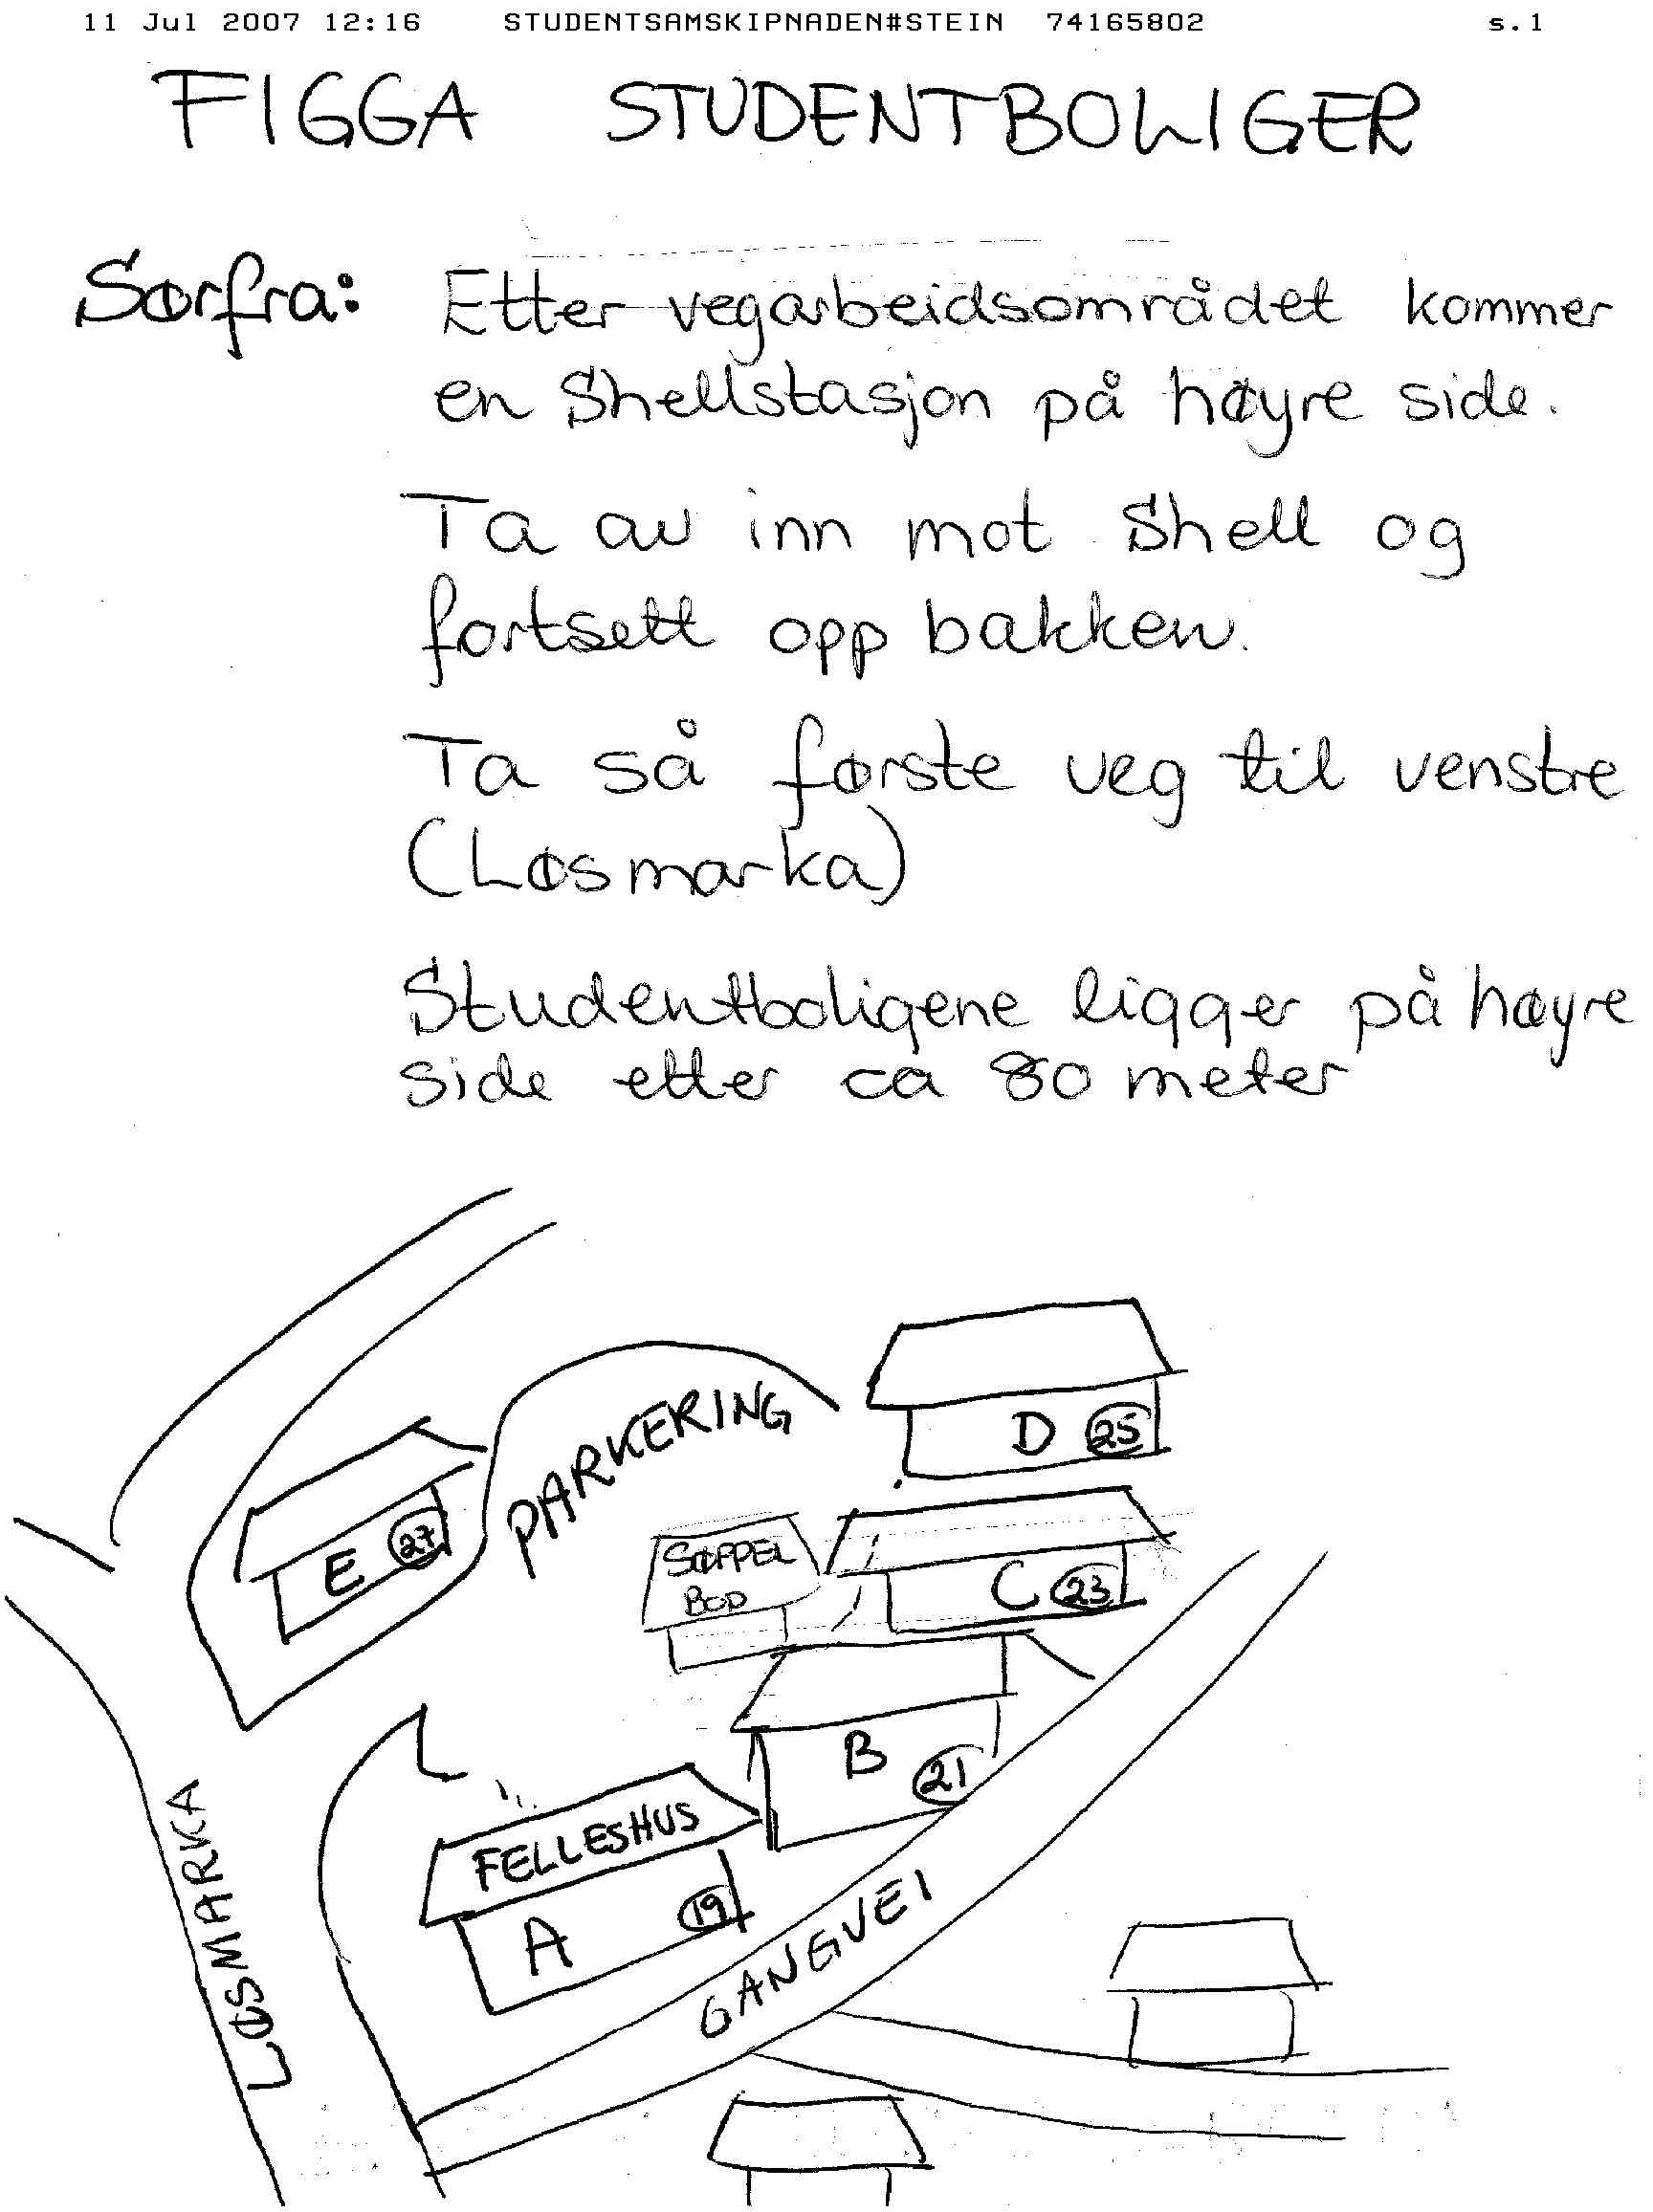 11 Jul 2007 12:16 STUDENTSAMSKIPNADEN#STEIN 74165802 s.1
FIGGA STUDENTBOLIGER
Sørfra: Etter vegarbeidsområdet kommer
en Shellstasjon på høyre side.
Ta av inn mot Shell og
fortsett opp bakken.
Ta så første veg til venstre
(Løsmarka)
Studentboligene ligger på høyre
side etter ca 80 meter
PARKERING
D 25
E 27
SØPPEL
BOD
C 23
B 21
FELLESHUS
A 19
GANGVEI
LØSMARKA